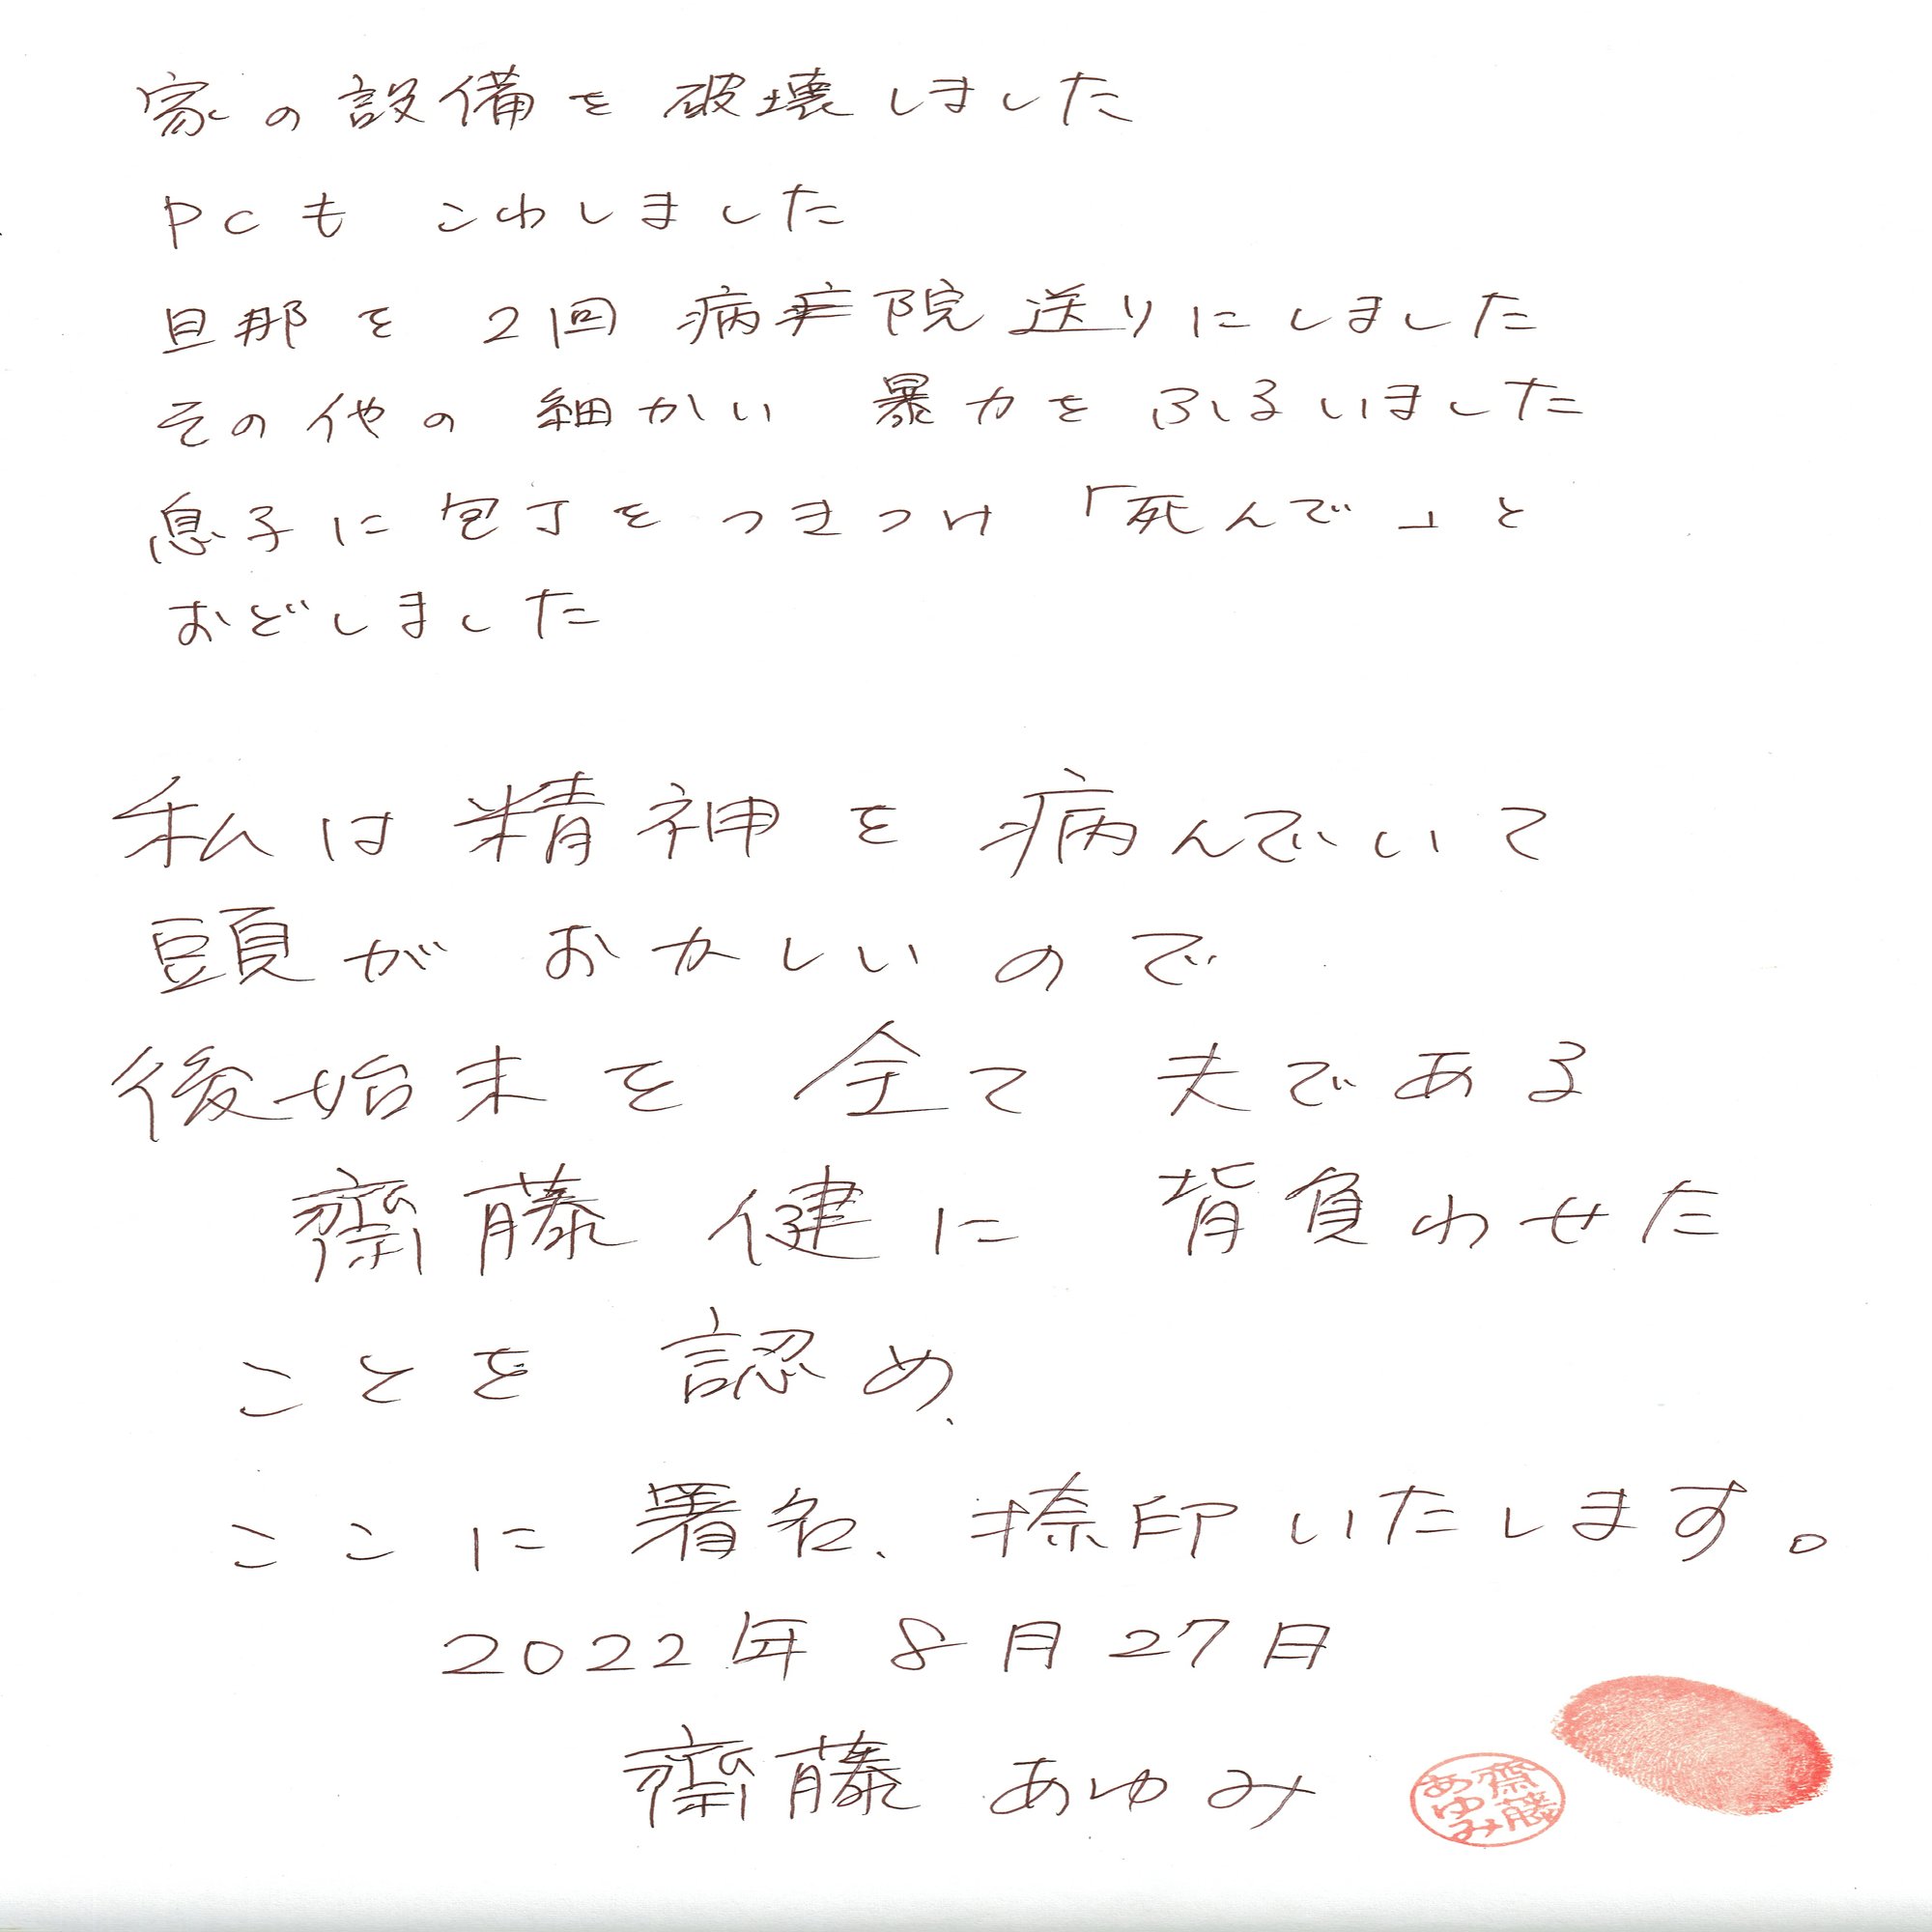 家の設備を破壊しました
PCも こわしました
旦那を 2回 病院送りにしました
その他の 細かい 暴力を ふるいました
息子に 包丁を つきつけ 「死んで」と
おどしました
私は精神を 病んでいて
頭が おかしいので
後始末を 全て 夫である
齋藤 健に 背負わせた
ことを 認め、
ここに 署名、捺印いたします。
2022年 8月27日
齋藤 あゆみ
齋藤
あゆみ